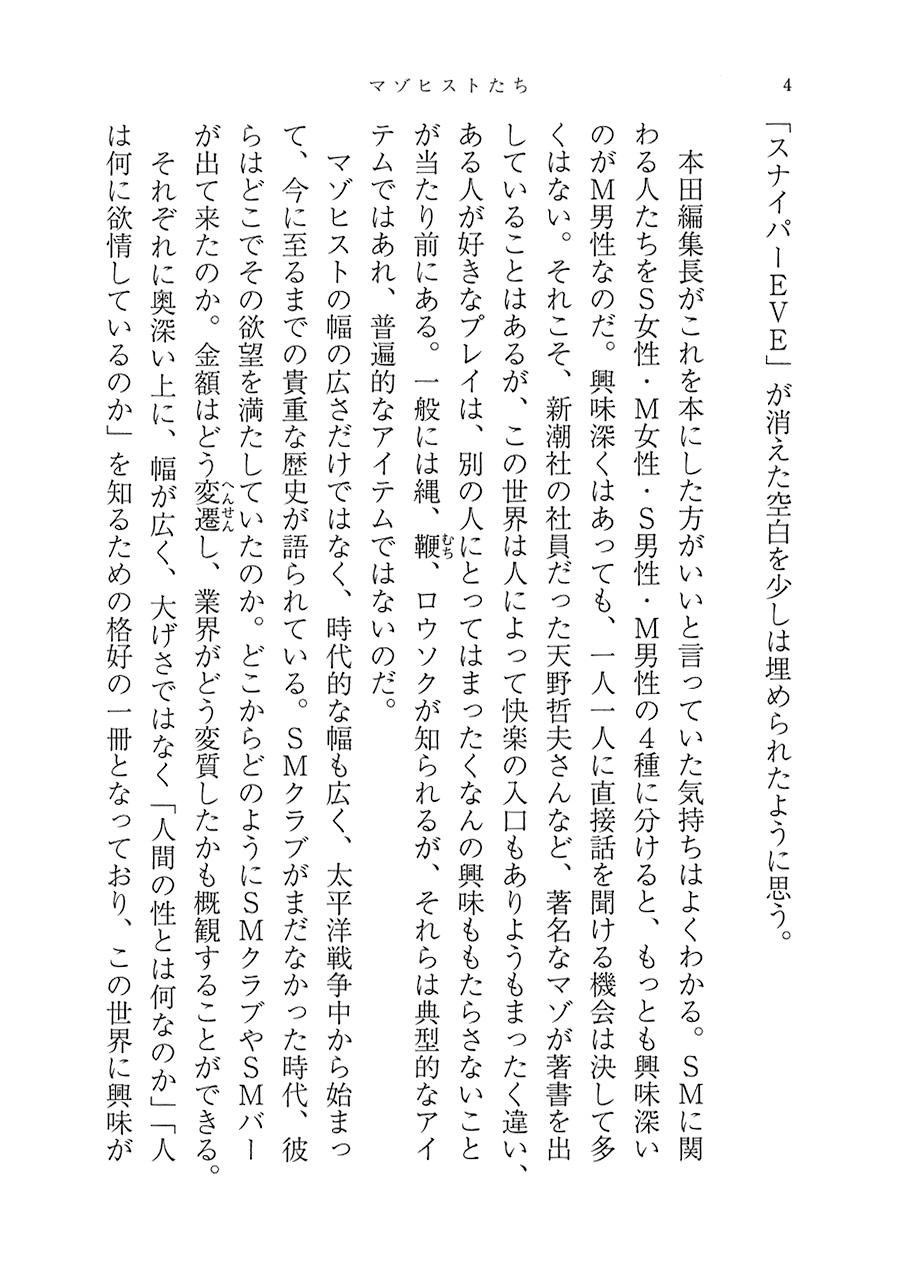 マゾヒストたち
4
「スナイパーEVE」が消えた空白を少しは埋められたように思う。
本田編集長がこれを本にした方がいいと言っていた気持ちはよくわかる。SMに関
わる人たちをS女性・M女性・S男性・M男性の4種に分けると、もっとも興味深い
のがM男性なのだ。興味深くはあっても、一人一人に直接話を聞ける機会は決して多
くはない。それこそ、新潮社の社員だった天野哲夫さんなど、著名なマゾが著書を出
していることはあるが、この世界は人によって快楽の入口もありようもまったく違い、
ある人が好きなプレイは、別の人にとってはまったくなんの興味ももたらさないこと
が当たり前にある。一般には縄、鞭、ロウソクが知られるが、それらは典型的なアイ
むち
テムではあれ、普遍的なアイテムではないのだ。
マゾヒストの幅の広さだけではなく、時代的な幅も広く、太平洋戦争中から始まっ
て、今に至るまでの貴重な歴史が語られている。SMクラブがまだなかった時代、彼
らはどこでその欲望を満たしていたのか。どこからどのようにSMクラブやSMバー
が出て来たのか。金額はどう変遷し、業界がどう変質したかも概観することができる。
へんせん
それぞれに奥深い上に、幅が広く、大げさではなく「人間の性とは何なのか」「人
は何に欲情しているのか」を知るための格好の一冊となっており、この世界に興味が